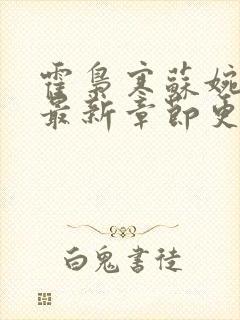 霍梟寒蘇婉
最新章節更
白鬼書徒